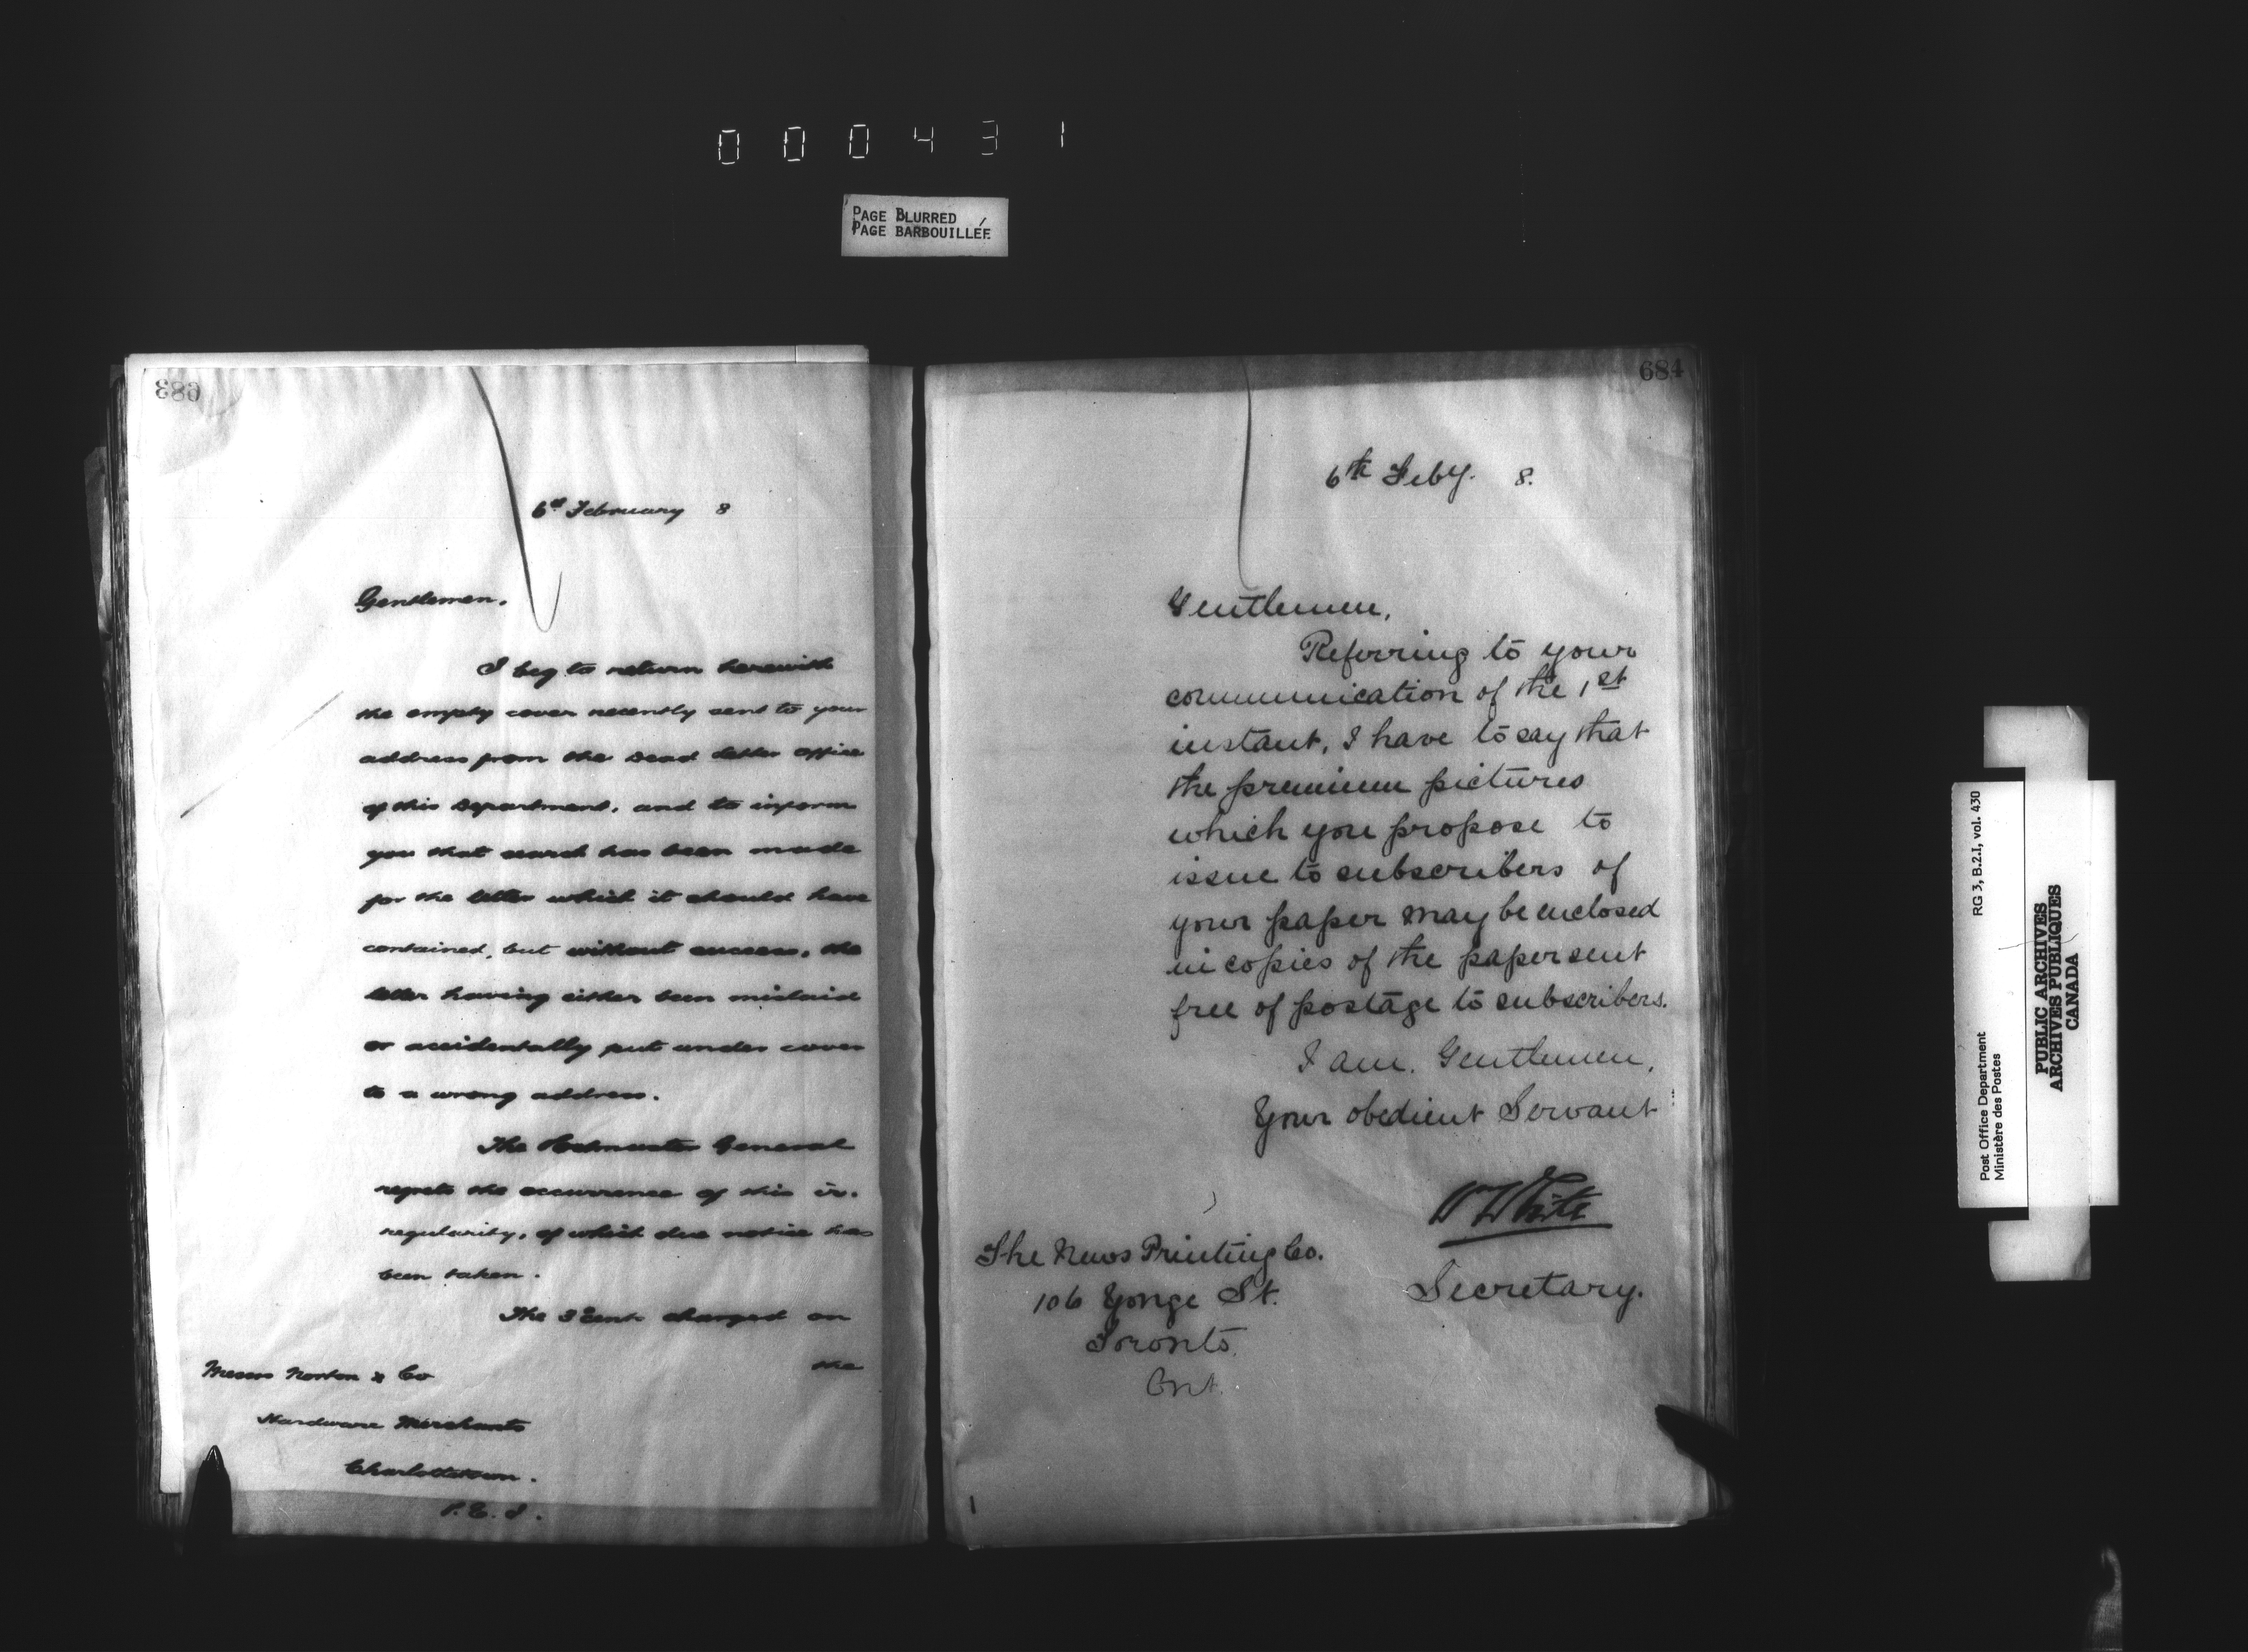 000431
PAGE BLURRED
PAGE BARBOUILLÉE
683
6th February 8
Gentlemen.
I beg to return herewith
the empty cover recently sent to your
address from the Dead Letter Office
of this Department, and to inform
you that search has been made
for the letter which it should have
contained, but without success, the
letter having either been mislaid
or accidentally put under cover
to a wrong address.
The Postmaster General
regrets the occurrence of this ir-
regularity, of which due notice has
been taken.
The 3 cents charged on
the
Messrs Norton & Co
Hardware Merchants
Charlottetown.
P.E.I.
684
6th Feby. 8.
Gentlemen,
Referring to your
communication of the 1st
instant, I have to say that
the premium pictures
which you propose to
issue to subscribers of
your paper may be enclosed
in copies of the paper sent
free of postage to subscribers.
I am, Gentlemen,
Your obedient Servant
W White
Secretary.
The News Printing Co.
106 Yonge St.
Toronto.
Ont.
Post Office Department
Ministère des Postes
RG 3, B.2.I, vol. 430
PUBLIC ARCHIVES
ARCHIVES PUBLIQUES
CANADA